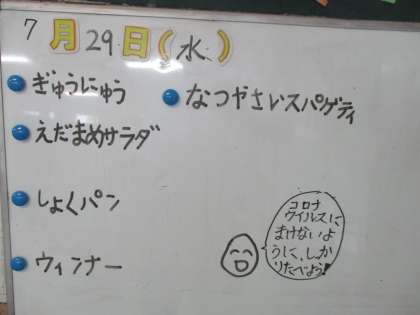 7月29日(水)
ぎゅうにゅう
なつやさいスパゲティ
えだまめサラダ
しょくパン
ウィンナー
コロナ
ウイルスに
まけないよ
うに、しっか
りたべよう!